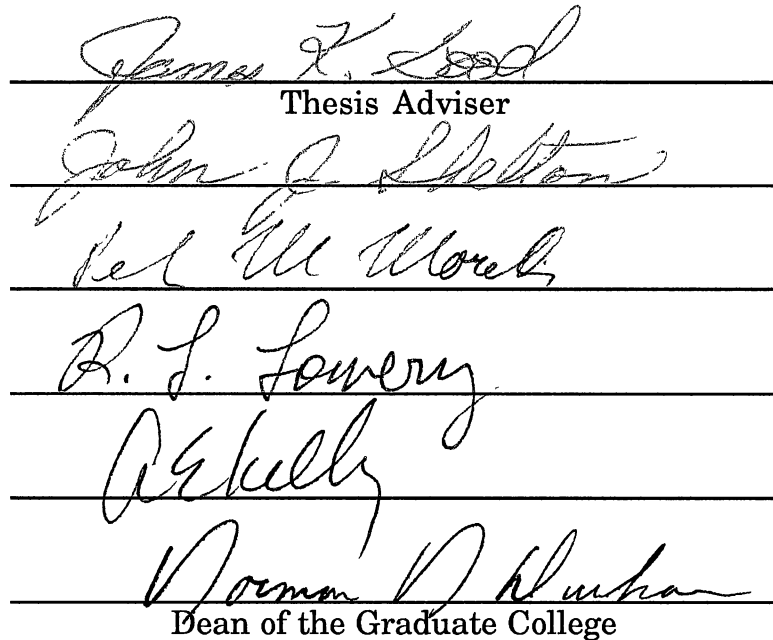 James K. Good
Thesis Adviser
John J. Shelton
M
R. L. Lowery
AEKelly
Norman N Durham
Dean of the Graduate College